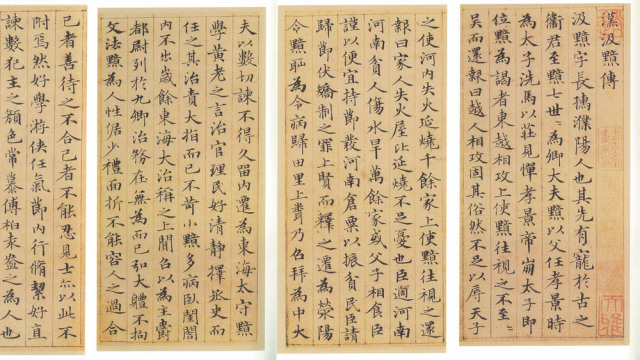 漢汲黯傳
汲黯字長孺濮陽人也其先有寵於古之
衛君至黯七世〻為卿大夫黯以父任孝景時
為太子洗馬以莊見憚孝景帝崩太子即
位黯為謁者東越相攻上使黯往視之不至〻
吳而還報曰越人相攻固其俗然不足以辱天子
之使河內失火延燒千餘家上使黯往視之還
報曰家人失火屋比延燒不足憂也臣過河南
河南貧人傷水旱萬餘家或父子相食臣
謹以便宜持節發河南倉粟以振貧民臣請
歸節伏矯制之罪上賢而釋之遷為滎陽
令黯恥為令病歸田里上聞乃召拜為中大
夫以數切諫不得久留內遷為東海太守黯
學黃老之言治官理民好清靜擇丞史而
任之其治責大指而已不苛小黯多病臥閨閤
內不出歲餘東海大治稱之上聞召以為主爵
都尉列於九卿治務在無為而已弘大體不拘
文法黯為人性倨少禮面折不能容人之過合
己者善待之不合己者不能忍見士亦以此不
附焉然好學游俠任氣節內行脩絜好直
諫數犯主之顏色常慕傅柏袁盎之為人也